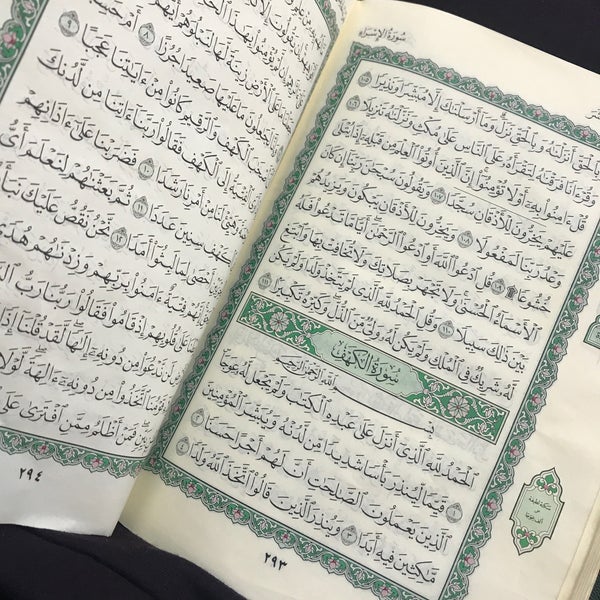 سُورَةُ الإِسۡرَاءِ
وَبِٱلۡحَقِّ أَنزَلۡنَٰهُ وَبِٱلۡحَقِّ نَزَلَۗ وَمَآ أَرۡسَلۡنَٰكَ إِلَّا مُبَشِّرٗا وَنَذِيرٗا ١٠٥
وَقُرۡءَانٗا فَرَقۡنَٰهُ لِتَقۡرَأَهُۥ عَلَى ٱلنَّاسِ عَلَىٰ مُكۡثٖ وَنَزَّلۡنَٰهُ تَنزِيلٗا ١٠٦
قُلۡ ءَامِنُواْ بِهِۦٓ أَوۡ لَا تُؤۡمِنُوٓاْۚ إِنَّ ٱلَّذِينَ أُوتُواْ ٱلۡعِلۡمَ مِن قَبۡلِهِۦٓ إِذَا يُتۡلَىٰ
عَلَيۡهِمۡ يَخِرُّونَۤ لِلۡأَذۡقَانِۤ سُجَّدٗاۤ ١٠٧ وَيَقُولُونَ سُبۡحَٰنَ رَبِّنَآ إِن كَانَ
وَعۡدُ رَبِّنَا لَمَفۡعُولٗا ١٠٨ وَيَخِرُّونَ لِلۡأَذۡقَانِ يَبۡكُونَ وَيَزِيدُهُمۡ
خُشُوعٗا۩ ١٠٩ قُلِ ٱدۡعُواْ ٱللَّهَ أَوِ ٱدۡعُواْ ٱلرَّحۡمَٰنَۖ أَيّٗا مَّا تَدۡعُواْ فَلَهُ
ٱلۡأَسۡمَآءُ ٱلۡحُسۡنَىٰۚ وَلَا تَجۡهَرۡ بِصَلَاتِكَ وَلَا تُخَافِتۡ بِهَا وَٱبۡتَغِ
بَيۡنَ ذَٰلِكَ سَبِيلٗا ١١٠ وَقُلِ ٱلۡحَمۡدُ لِلَّهِ ٱلَّذِي لَمۡ يَتَّخِذۡ وَلَدٗا وَلَمۡ يَكُن
لَّهُۥ شَرِيكٞ فِي ٱلۡمُلۡكِ وَلَمۡ يَكُن لَّهُۥ وَلِيّٞ مِّنَ ٱلذُّلِّۖ وَكَبِّرۡهُ تَكۡبِيرَۢا ١١١
سُورَةُ الكَهۡفِ
بِسۡمِ ٱللَّهِ ٱلرَّحۡمَٰنِ ٱلرَّحِيمِ
ٱلۡحَمۡدُ لِلَّهِ ٱلَّذِيٓ أَنزَلَ عَلَىٰ عَبۡدِهِ ٱلۡكِتَٰبَ وَلَمۡ يَجۡعَل لَّهُۥ عِوَجَاۜ ١
قَيِّمٗا لِّيُنذِرَ بَأۡسٗا شَدِيدٗا مِّن لَّدُنۡهُ وَيُبَشِّرَ ٱلۡمُؤۡمِنِينَ
ٱلَّذِينَ يَعۡمَلُونَ ٱلصَّٰلِحَٰتِ أَنَّ لَهُمۡ أَجۡرًا حَسَنٗا ٢
مَّٰكِثِينَ فِيهِ أَبَدٗا ٣ وَيُنذِرَ ٱلَّذِينَ قَالُواْ ٱتَّخَذَ ٱللَّهُ وَلَدٗا ٤
٢٩٣
زِينَةٗ لَّهَا لِنَبۡلُوَهُمۡ أَيُّهُمۡ
لَجَٰعِلُونَ مَا عَلَيۡهَا صَعِيدٗا جُرُزًا ٨ أَمۡ حَسِبۡتَ
ٱلۡكَهۡفِ وَٱلرَّقِيمِ كَانُواْ مِنۡ ءَايَٰتِنَا عَجَبًا ٩
إِلَى ٱلۡكَهۡفِ فَقَالُواْ رَبَّنَآ ءَاتِنَا مِن لَّدُنكَ
وَهَيِّئۡ لَنَا مِنۡ أَمۡرِنَا رَشَدٗا ١٠ فَضَرَبۡنَا عَلَىٰٓ ءَاذَانِهِمۡ
سِنِينَ عَدَدٗا ١١ ثُمَّ بَعَثۡنَٰهُمۡ لِنَعۡلَمَ أَيُّ
أَحۡصَىٰ لِمَا لَبِثُوٓاْ أَمَدٗا ١٢ نَّحۡنُ نَقُصُّ عَلَيۡكَ نَبَأَ
فِتۡيَةٌ ءَامَنُواْ بِرَبِّهِمۡ وَزِدۡنَٰهُمۡ هُدٗى
عَلَىٰ قُلُوبِهِمۡ إِذۡ قَامُواْ فَقَالُواْ رَبُّنَا رَبُّ
لَن نَّدۡعُوَاْ مِن دُونِهِۦٓ إِلَٰهٗاۖ لَّقَدۡ قُلۡنَآ إِذٗا
قَوۡمُنَا ٱتَّخَذُواْ مِن دُونِهِۦٓ ءَالِهَةٗۖ لَّوۡلَا
بَيِّنٖۖ فَمَنۡ أَظۡلَمُ مِمَّنِ ٱفۡتَرَىٰ عَلَى
٢٩٤